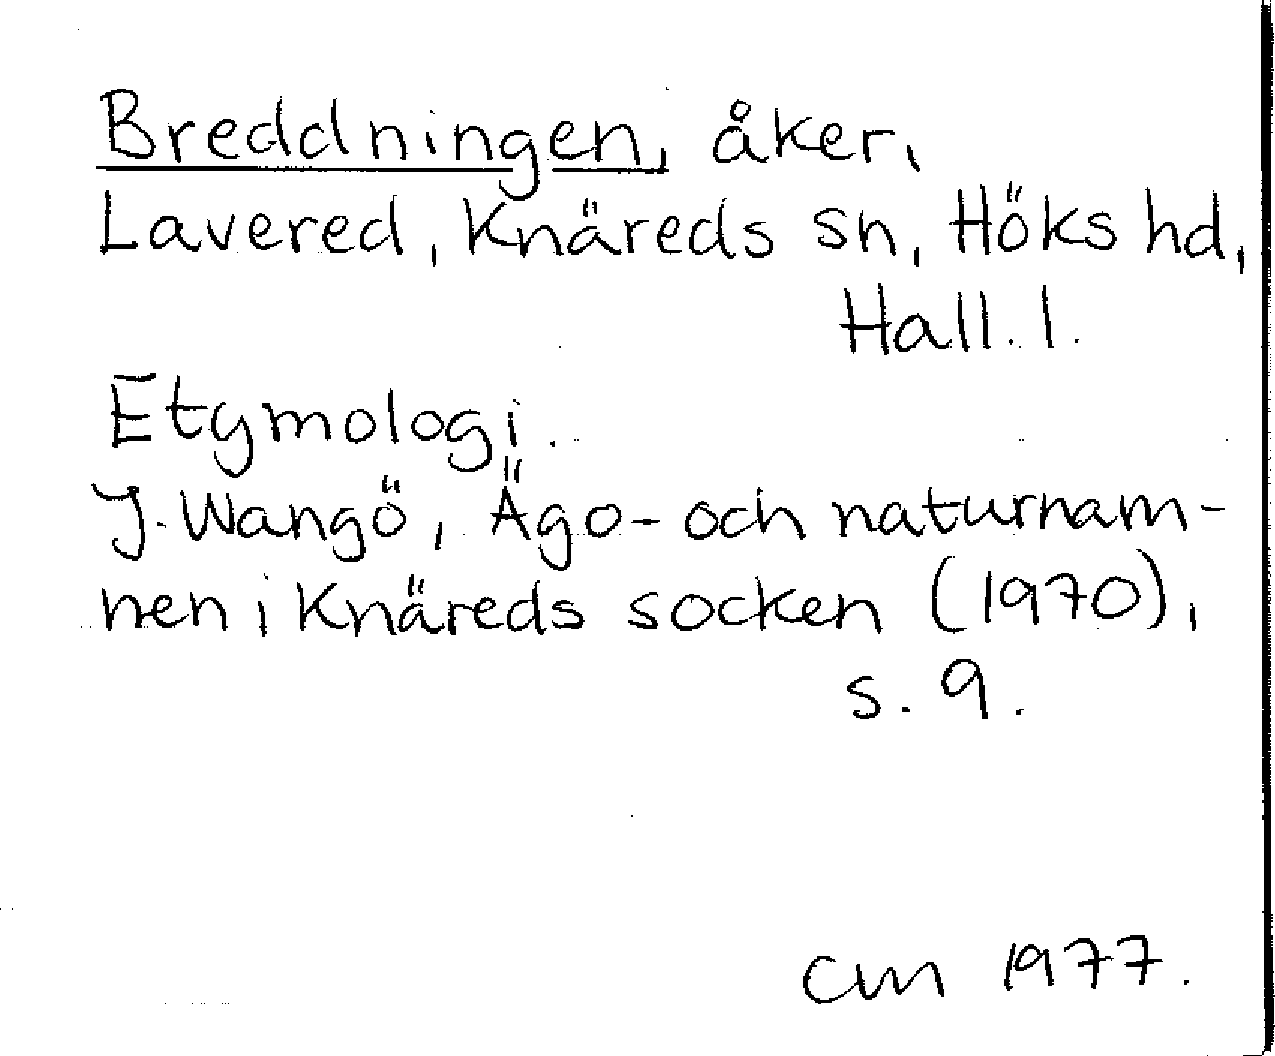 Breddningen, åker,
Lavered, Knäreds sn, Höks hd,
Hall. l.
Etymologi.
J. Wangö, Ägo- och naturnam-
nen i Knäreds socken (1970),
s. 9.
CM 1977.